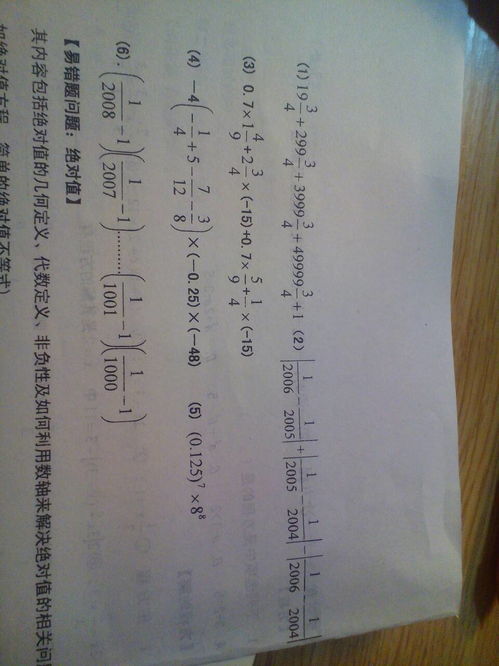 (1) 19 3/4 + 299 3/4 + 3999 3/4 + 49999 3/4 + 1 (2) |1/2006 - 1/2005| + |1/2005 - 1/2004| - |1/2006 - 1/2004|
(3) 0.7×1 4/9 + 2 3/4 ×(-15)+0.7× 5/9 + 1/4 ×(-15)
(4) -4(-1/4 + 5 - 7/12 - 3/8)×(-0.25)×(-48) (5) (0.125)^7 × 8^8
(6). (1/2008 - 1)(1/2007 - 1)..........(1/1001 - 1)(1/1000 - 1)
【易错题问题：绝对值】
其内容包括绝对值的几何定义、代数定义、非负性及如何利用数轴来解决绝对值的相关问
如绝对值方程、简单的绝对值不等式）